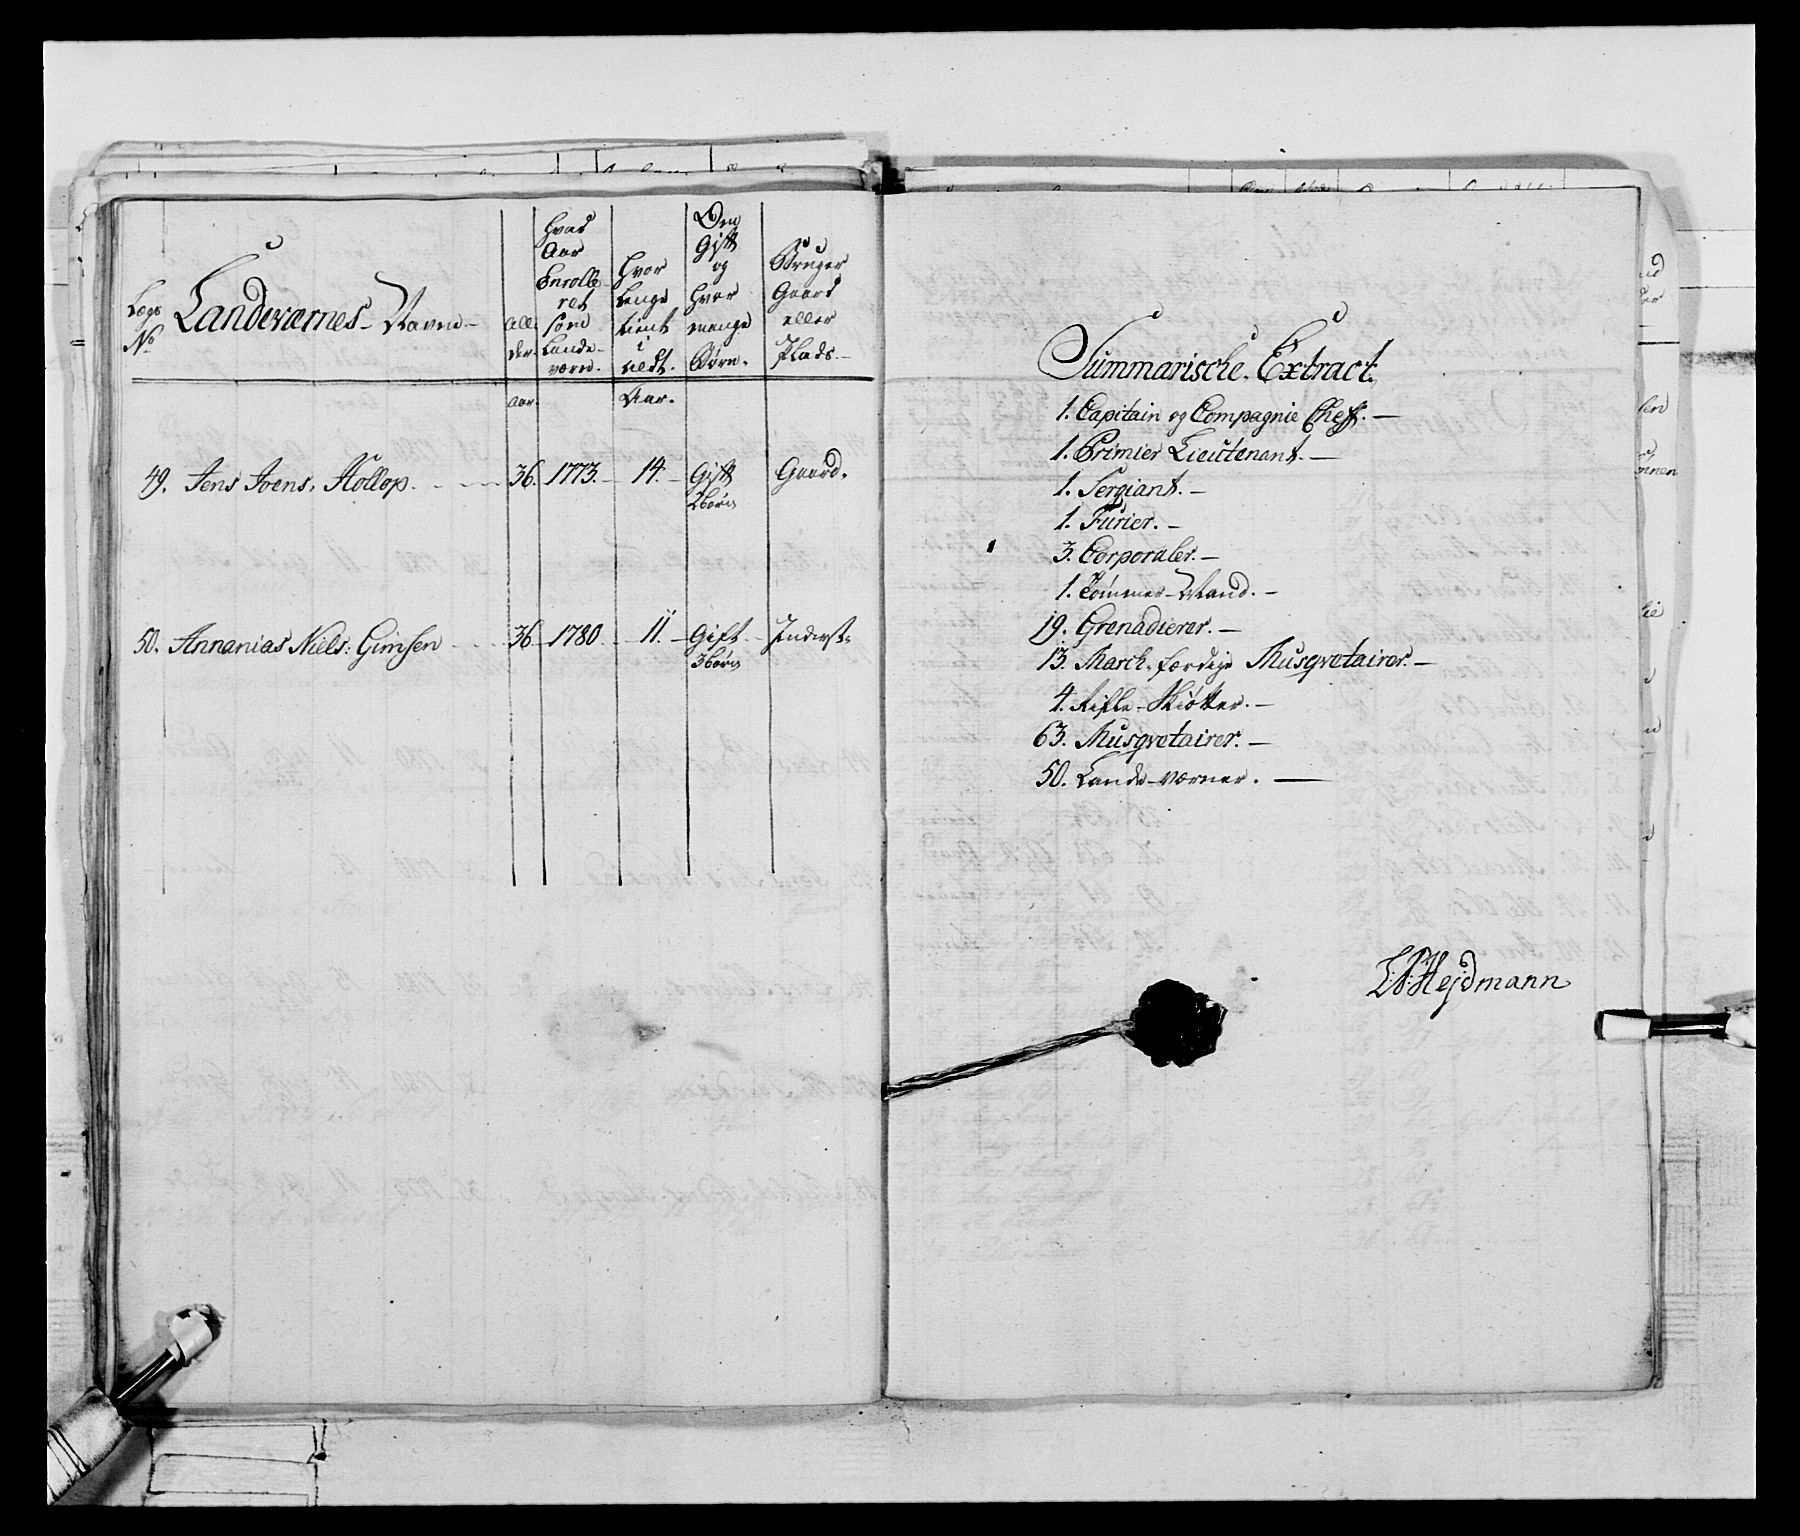 Lægs
No
Landeværnes Navne
All
der
Hvad
Aar
Enrolle
ret
som
Lande-
værn.
Hvor
Længe
tient
i
alt.
Om
Gift
og
Hvor
mange
Børn.
Bruger
Gaard
eller
Plads.
Aar.
Aar.
49. Jens Joens. Hollop. 36. 1773. 14. Gift Gaard.
2 børn
50. Annanias Niels: Gimsen 36 1780 11. Gift Inderst
3 børn
Summarische Extract.
1. Capitain og Compagnie Cheff.
1. Primier Lieutenant.
1. Sergiant.
1. Furier.
3. Corporaler.
1. Tømmer-Mand.
19. Grenadierer.
13. March-færdige Musqvetairer.
4. Rifle-Skiötter.
63. Musqvetairer.
50. Lande-værner.
Hejdmann